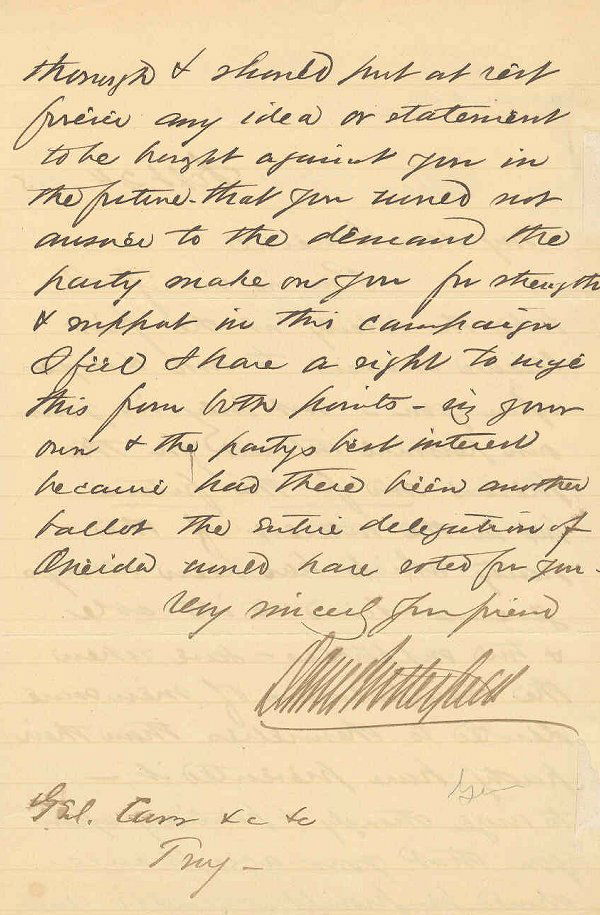 thorough & should put at rest
forever any idea or statement
to be brought against you in
the future - that you would not
answer to the demand the
party make on you for strength
& support in this campaign
I feel I have a right to urge
this from both points - viz your
own & the partys best interest
because had there been another
ballot the entire delegation of
Oneida would have voted for you -
Very sincerely your friend
Dan Butterfield
Genl. Carr &c &c
Troy -